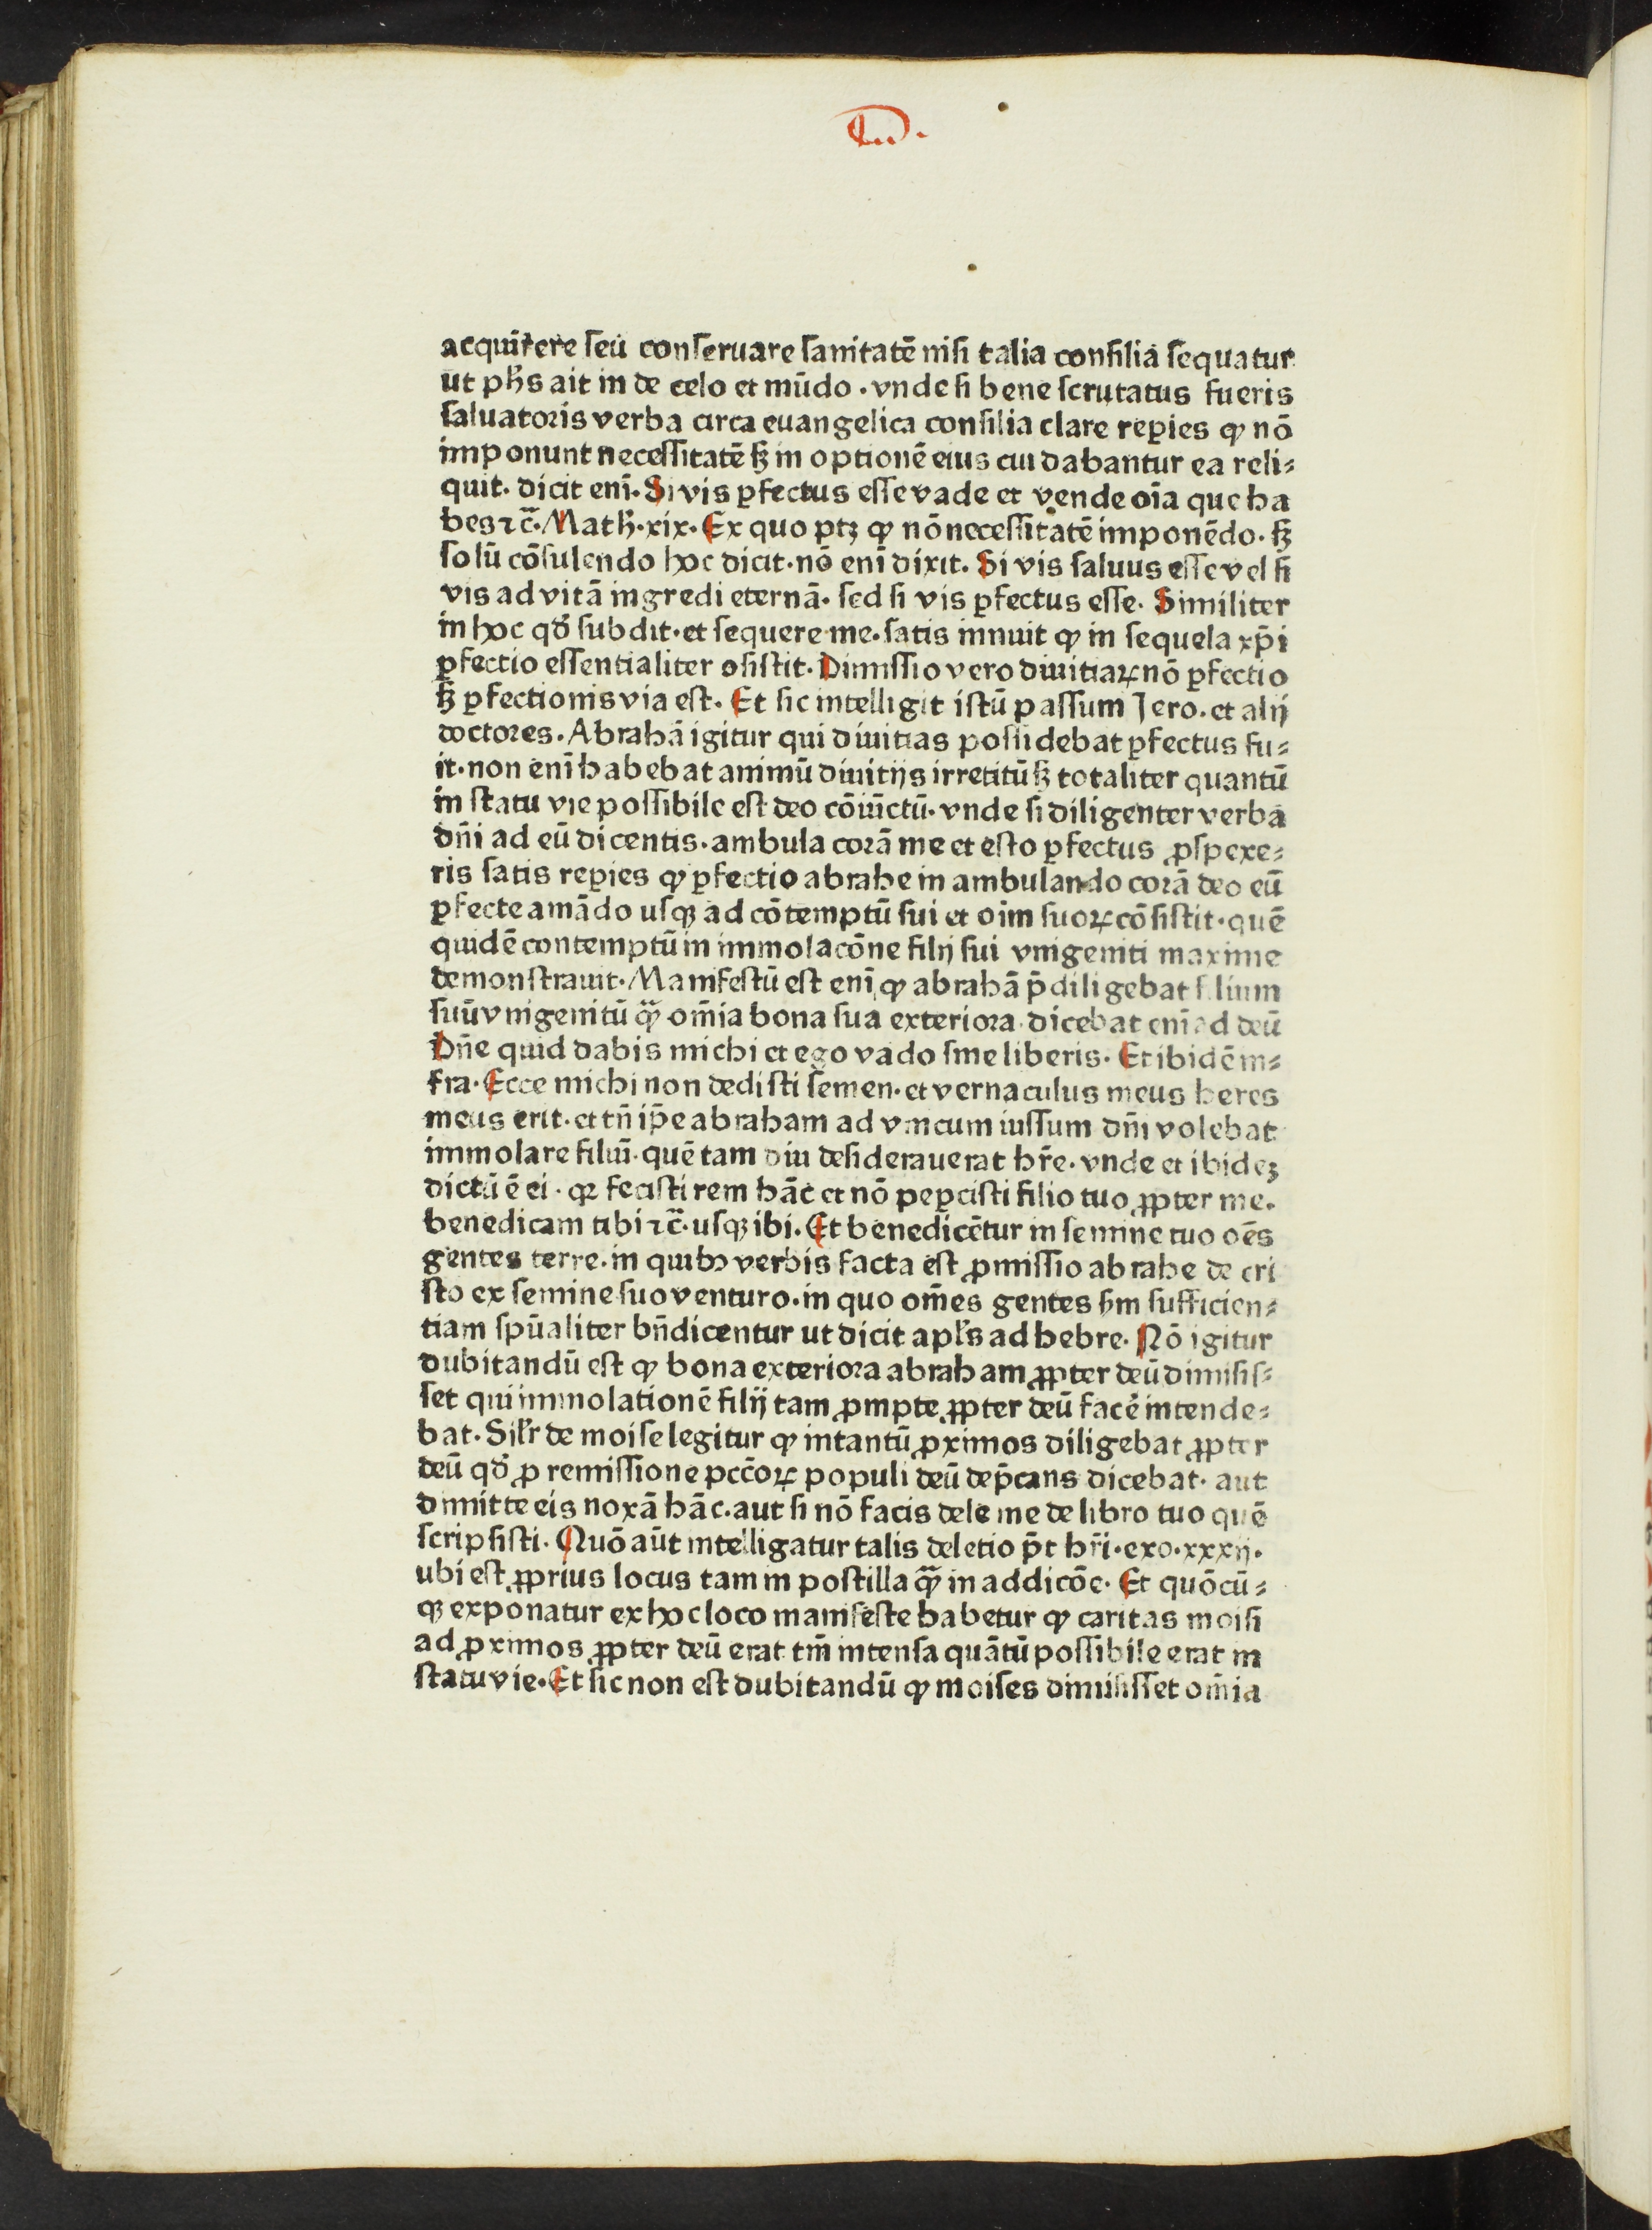 acquirere seu conseruare sanitatē nisi talia consilia sequatur
ut ph̄s ait in de celo et mūdo . vnde si bene scrutatus fueris
saluatoris verba circa euangelica consilia clare reꝑies ꝙ nō
imponunt necessitatē sꝫ in optionē eius cui dabantur ea reli⸗
quit. dicit eni̅. Si vis ꝑfectus esse vade et vende oi̅a que ha
bes ⁊c̄. Math̄. xix. Ex quo ptꝫ ꝙ nō necessitatē imponēdo. sꝫ
solū cōsulendo hoc dicit. nō eni̅ dixit. Si vis saluus esse vel si
vis ad vitā ingredi eternā. sed si vis ꝑfectus esse. Similiter
in hoc qđ subdit. et sequere me. satis innuit ꝙ in sequela xp̄i
ꝑfectio essentialiter ↄsistit. Dimissio vero diuitiaꝝ nō ꝑfectio
sꝫ ꝑfectionis via est. Et sic intelligit istū passum Jero. et alij
doctores. Abrahā igitur qui diuitias possidebat ꝑfectus fu⸗
it. non eni̅ habebat animū diuitijs irretitū sꝫ totaliter quantū
in statu vie possibile est deo cōiūctū. vnde si diligenter verba
dn̄i ad eū dicentis. ambula corā me et esto ꝑfectus ꝓspexe⸗
ris satis reꝑies ꝙ ꝑfectio abrahe in ambulando corā deo eū
ꝑfecte amādo usqꝫ ad cōtemptū sui et oi̅m suoꝝ cōsistit. quē
quidē contemptū in immolacōne filij sui vnigeniti maxime
demonstrauit. Manifestū est eni̅ ꝙ abrahā p̄diligebat filium
suū vnigenitū qꝫ̄ om̄ia bona sua exteriora. dicebat eni̅ ad deū
Dn̄e quid dabis michi et ego vado sine liberis. Et ibidē in⸗
fra. Ecce michi non dedisti semen. et vernaculus meus heres
meus erit. et tn̄ ip̄e abraham ad vnicum iussum dn̄i volebat
immolare filiū. quē tam diu desiderauerat hr̄e. vnde et ibideꝫ
dictū ē ei. qꝛ fecisti rem hāc et nō peꝑcisti filio tuo ꝓpter me.
benedicam tibi ⁊c̄. usqꝫ ibi. Et benedicētur in semine tuo oēs
gentes terre. in quibꝫ verbis facta est ꝓmissio abrahe de cri
sto ex semine suo venturo. in quo om̄es gentes sm̄ sufficien⸗
tiam spūaliter bn̄dicentur ut dicit apl̄s ad hebre. Nō igitur
dubitandū est ꝙ bona exteriora abraham ꝓpter deū dimisis⸗
set qui immolationē filij tam ꝓmpte ꝓpter deū facē intende⸗
bat. Sil̄r de moise legitur ꝙ intantū ꝓximos diligebat ꝓpter
deū qđ ꝓ remissione pccōꝝ populi deū dep̄cans dicebat. aut
dimitte eis noxā hāc. aut si nō facis dele me de libro tuo quē
scripsisti. Quō aūt intelligatur talis deletio p̄t hr̄i. exo. xxxij.
ubi est ꝓprius locus tam in postilla qꝫ̄ in addicōe. Et quōcū⸗
qꝫ exponatur ex hoc loco manifeste habetur ꝙ caritas moisi
ad ꝓximos ꝓpter deū erat tm̄ intensa quātū possibile erat in
statu vie. Et sic non est dubitandū ꝙ moises dimisisset om̄ia